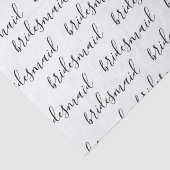 bridesmaid bridesmaid
bridesmaid bridesmaid bridesmaid
bridesmaid bridesmaid bridesmaid
bridesmaid bridesmaid
bridesmaid bridesmaid
bridesmaid